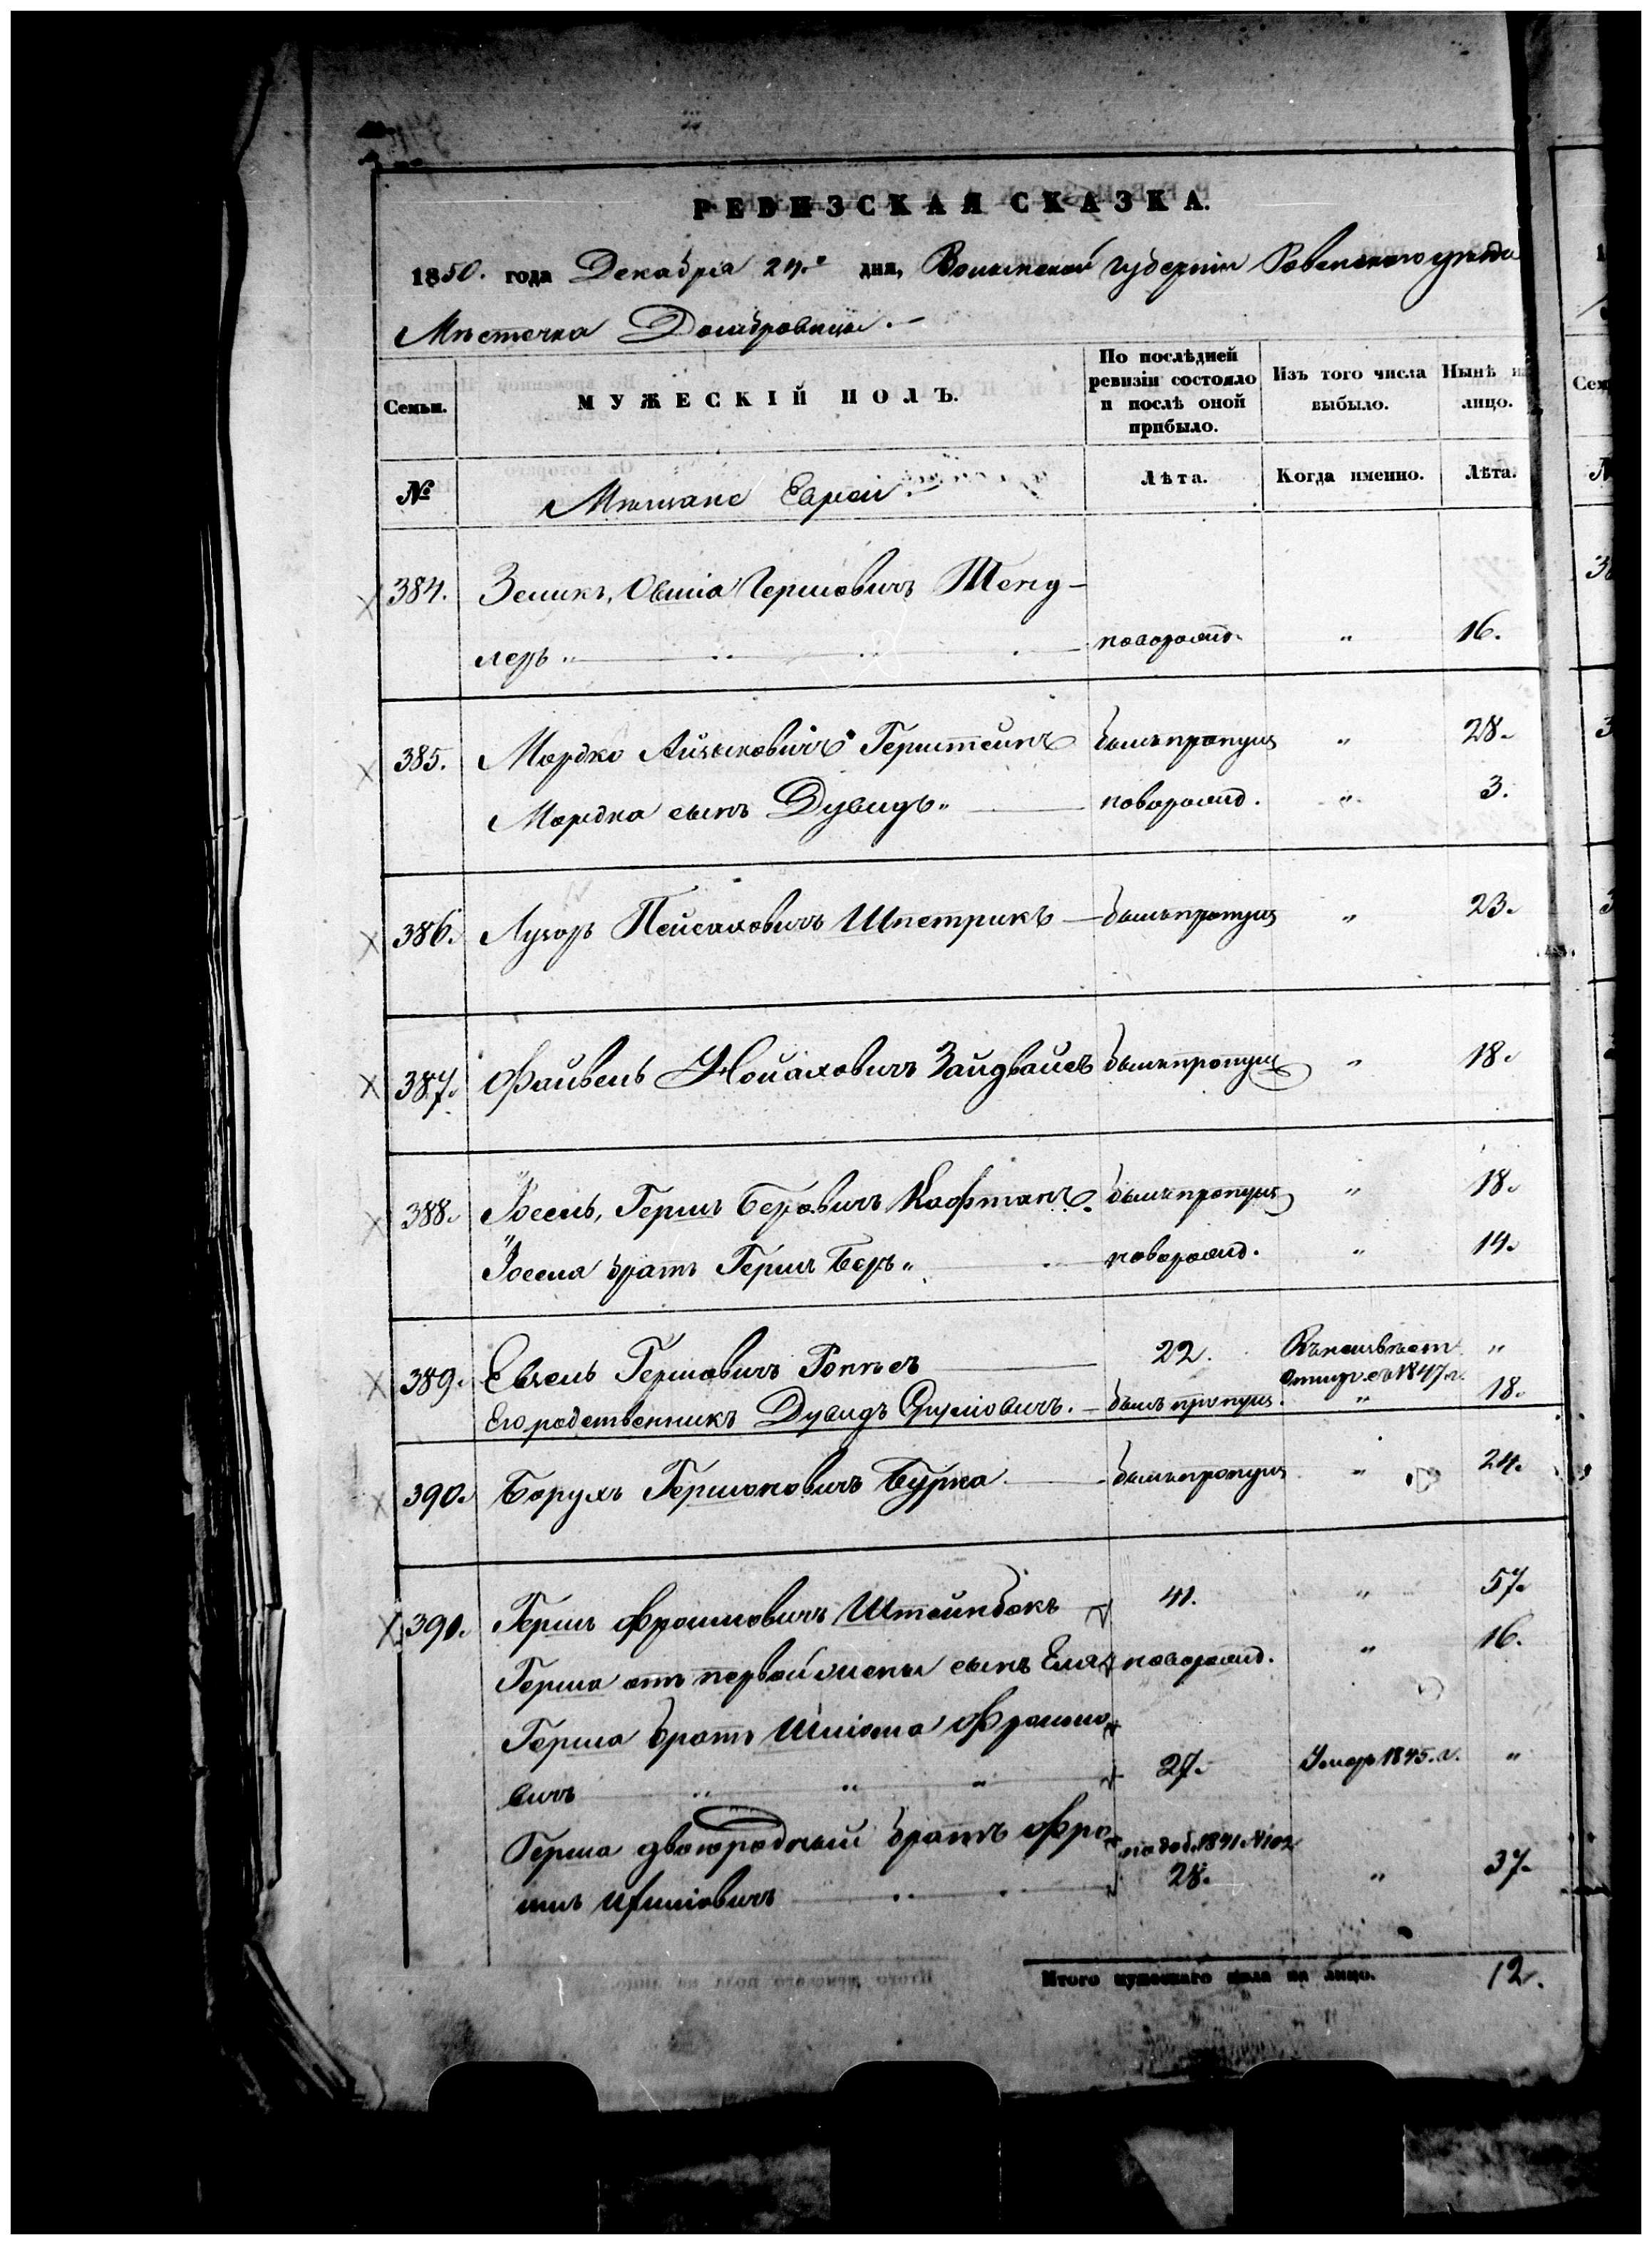 РЕВИЗСКАЯ СКАЗКА.
1850. года Декабря 24.го дня, Волынской губернии Ровенского уезда
Мѣстечка Домбровицы.
Семьи.
МУЖЕСКІЙ ПОЛЪ.
По послѣдней ревизіи состояло и послѣ оной прибыло.
Изъ того числа выбыло.
Нынѣ на лицо.
№
Мѣщане Евреи
Лѣта.
Когда именно.
Лѣта.
384. Зеликъ, Овшіа Гершовичъ Тенд-
леръ " новорожд. " 16.
385. Мордко Айзиковичъ Герштейнъ былъ пропущ " 28.
Мордка сынъ Дувидъ " новорожд. " 3.
386. Лузоръ Пейсаховичъ Шпетрикъ былъ пропущ " 23.
387. Файвель Нойаховичъ Зайдвайсъ былъ пропущ " 18.
388. Іосель, Гершъ Беровичъ Кафтанъ. былъ пропущ " 18.
Іоселя братъ Гершъ Беръ " новорожд. " 14.
389. Евзель Гершовичъ 22. Въ неизвѣст "
отлуч. съ 1847 г.
Его родственникъ Дувидъ Сруліовичъ. былъ пропущ. " 18.
390. Борухъ Гершоновичъ Бурка былъ пропущ " 24.
391. Гершъ Фроимовичъ Штейнбокъ 41. " 57.
Герша отъ первой жены сынъ Еля новорожд. " 16.
Герша братъ Шліома Фроимо
вичъ " " " 27. Умеръ 1845. г. "
Герша двоюродный братъ Фро по доб. 1841 №102
имъ Шліовичъ 28. " 37.
Итого мужескаго пола на лицо. 12.